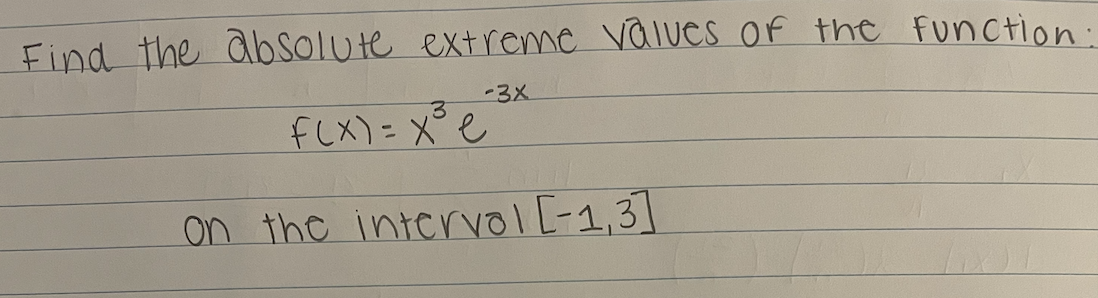 Find the absolute extreme values of the function:
f(x) = x³ e⁻³ˣ
on the interval [-1,3]